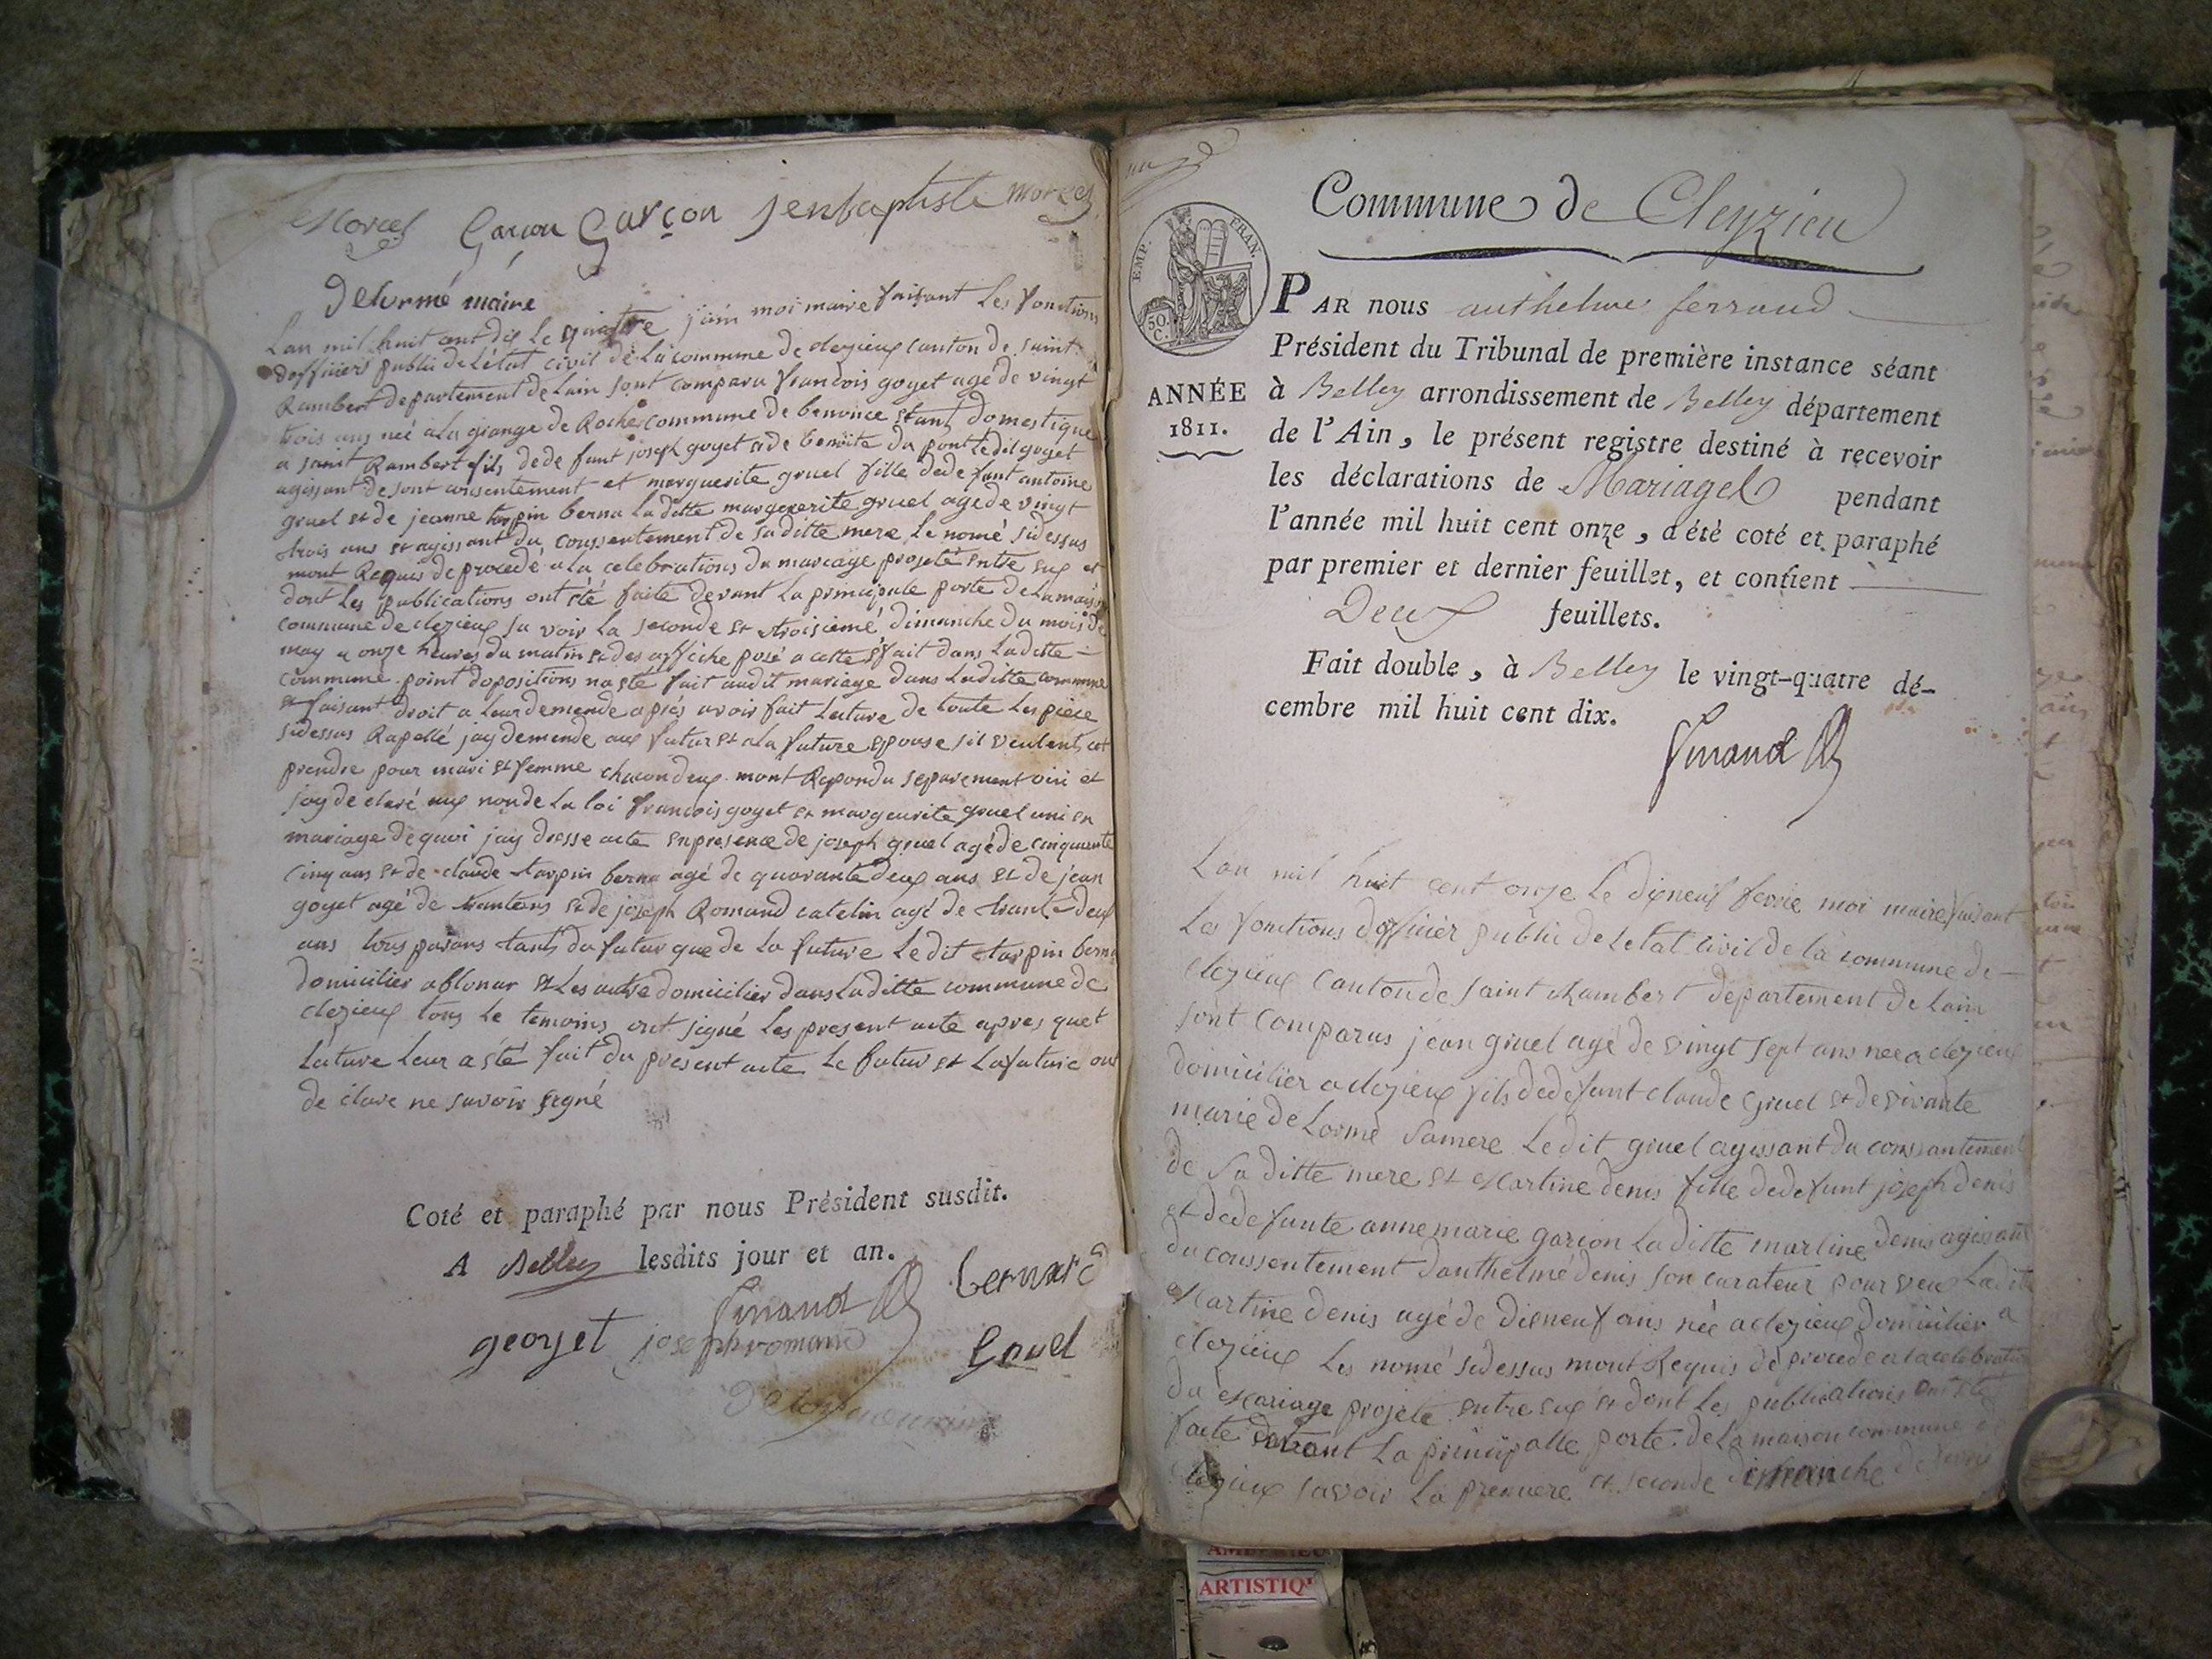 Morel Garçon Garçon jenbaptiste morel
delormé maire
Lan mil huit cent dix le quatre juin moi maire faisant les fonctions
dofficier public de létat civil de la commune de clezieux canton de saint
Rambert departement de lain sont comparu francois goyet agé de vingt
trois ans neé a la grange de Roche commune de benonce étant domestique
a saint Rambert fils de defunt joseph goyet et de benoite du pont ledit goyet
agissant de sont consentement et marguerite gruel fille de defunt antoine
gruel et de jeanne tarpin berna la ditte marguerite gruel age de vingt
trois ans et agissant du conssentement de sa ditte mere le nomé sidessus
mont Requis de procedé a la celebrations du mariage projeté entre eux et
dont les publications ont été faite devant la principale porte de la maison
commune de clezieux savoir la seconde et troisieme dimanche du mois de
may a onze heures du matin et des affiche posé a cette effait dans la ditte
commune point dopositions na été fait audit mariage dans laditte commune
et faisant droit a leur demende aprés avoir fait lecture de toute les piece
sidessus Rapellé jay demende aux futur et a la future epouse sil veulent
prendre pour mari et femme chacon deux mont Repondu separement oui et
jay declaré aux non de la loi francois goyet et marguerite gruel uni en
mariage de quoi jay dresse acte en presence de joseph gruel agé de cinquante
cinq ans et de claude tarpin berna agé de quarante deux ans et de jean
goyet agé de et de joseph Romand catelin agé de trante deux
ans tous parans tant du futur que de la future ledit tarpin berna
domicilier ablonar et les autre domicilier dans laditte commune de
clezieux tous le temoins ont signé les present acte apres quet
lecture leur a été fait du present acte le futur et la future ont
de clare ne savoir signé
Coté et paraphé par nous Président susdit.
A Belley lesdits jour et an.
bernard
georjet joseph romand Gruel
Commune de Cleyzieu
EMP. FRAN.
50. C.
ANNÉE
1811.
PAR nous anthelme ferrand
Président du Tribunal de première instance séant
à Belley arrondissement de Belley département
de l'Ain, le présent registre destiné à recevoir
les déclarations de Mariages pendant
l'année mil huit cent onze, a été coté et paraphé
par premier et dernier feuillet, et contient
Deux feuillets.
Fait double, à Belley le vingt-quatre dé-
cembre mil huit cent dix.
Lan mil huit cent onze le dixneuf fevrie moi maire faisant
les fonctions dofficier public de letat civil de la commune de
clezieux canton de saint Rambert departement de lain
sont comparus jean gruel agé de vingt sept ans nee a clezieux
domicilier a clezieux fils de defunt claude gruel et de vivante
marie de Lorme sa mere le dit gruel agissant du conssantement
de sa ditte mere et Martine denis fille de defunt joseph denis
et de defunte anne marie garcon la ditte martine denis agissant
du conssentement danthelme denis son curateur pour veu ladite
Martine denis agé de dixneuf ans née a clezieux domicilier a
clezieux les nomé sidessus mont Requis de procede a la celebration
du Mariage projeté entre eux et dont les publications ont été
faite devant la principalle porte de la maison commune de
clezieux savoir la premiere et seconde dimanche de
ARTISTIQ